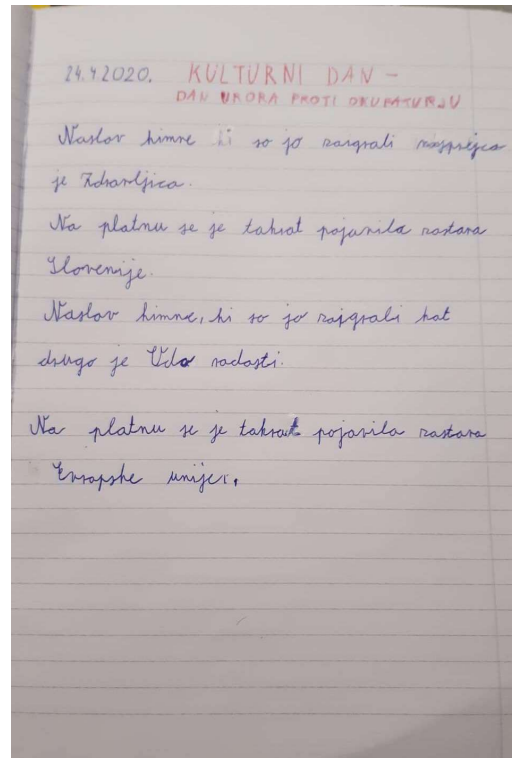 24.4.2020. KULTURNI DAN -
DAN UPORA PROTI OKUPATURJU
Naslov himne ki so jo zaigrali najprejca
je Zdravljica.
Na platnu se je takrat pojavila zastava
Slovenije.
Naslov himne, ki so jo zaigrali kot
drugo je Oda radosti.
Na platnu se je takrat pojavila zastava
Evropske unije.